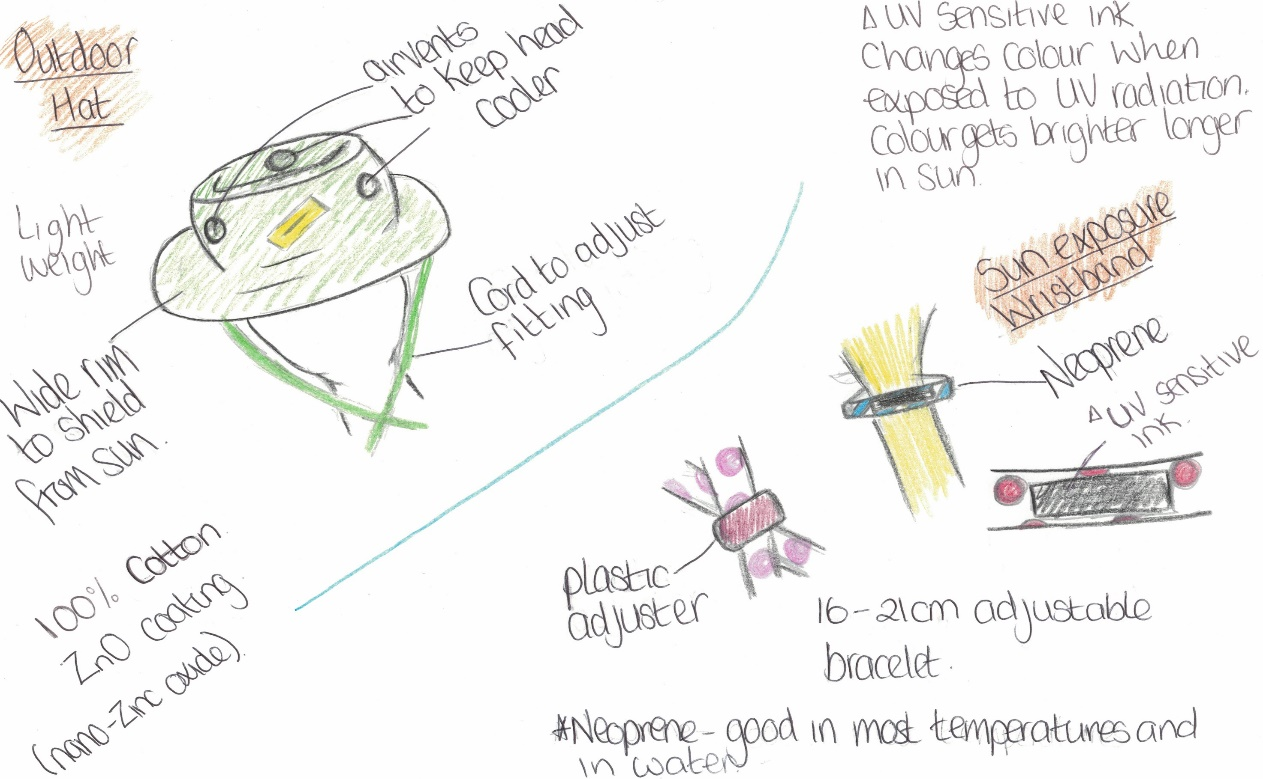 Outdoor
Hat
airvents
to keep head
cooler
Light
weight
Cord to adjust
fitting
Wide rim
to shield
from sun.
100% Cotton
ZnO coating
(nano-Zinc oxide).
Δ UV sensitive ink
changes colour when
exposed to UV radiation.
Colour gets brighter longer
in sun.
Sun exposure
Wristband
Neoprene
Δ UV sensitive
ink.
plastic
adjuster
16-21cm adjustable
bracelet.
*Neoprene- good in most temperatures and
in water.